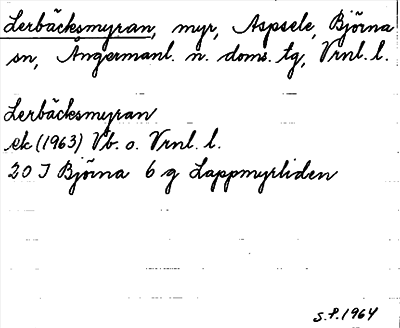 Lerbäcksmyran, myr, Aspsele, Björna
sn, Ångermanl. n. doms. tg, Vrnl. l.
Lerbäcksmyran
ek (1963) Vb. o. Vrnl. l.
20 J Björna 6 g Lappmyrliden
S.P. 1964